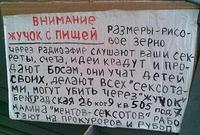 ВНИМАНИЕ
ЖУЧОК С ПИЩЕЙ РАЗМЕРЫ-РИСО-
ВОЕ ЗЕРНО
ЧЕРЕЗ РАДИОЭФИР СЛУШАЮТ ВАШИ СЕК-
РЕТЫ, СЧЕТА, ИДЕИ КРАДУТ И ПРО-
ДАЮТ БОСАМ, ОНИ УЧАТ ДЕТЕЙ
СВОИХ, ДЕЛАЮТ ВСЕХ "СЕКСОТА-
МИ, МОГУТ УБИТЬ ЧЕРЕЗ "ЖУЧОК"
БЕЛГРАДСКАЯ 26 КОР 9 КВ 505
МАЛИНА "МЕНТОВ-СЕКСОТОВ" РАБО
ТАЮТ НА ПРОКУРОРОВ И РУБОП